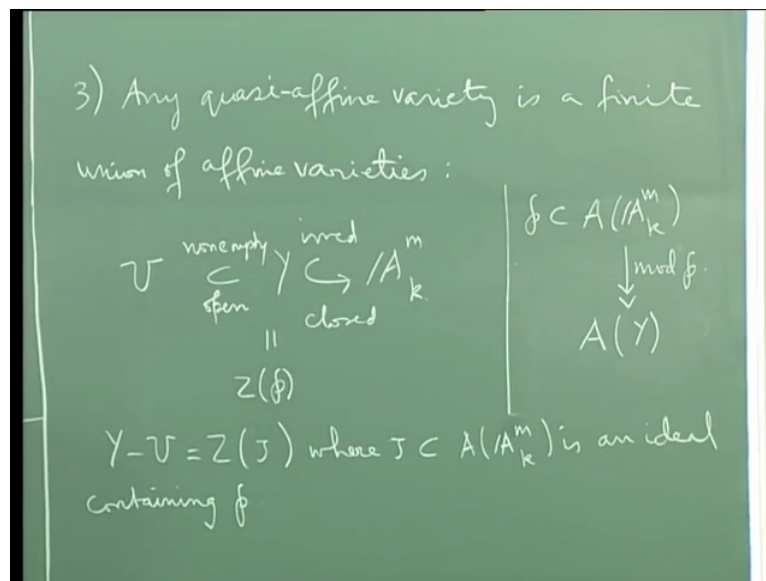 3) Any quasi-affine variety is a finite
union of affine varieties :
U nonempty ⊂ open Y irred ↪ closed 𝔸^m_k
||
Z(𝔭)
𝔭 ⊂ A(𝔸^m_k)
↓ mod 𝔭.
A(Y)
Y-U = Z(J) where J ⊂ A(𝔸^m_k) is an ideal
containing 𝔭